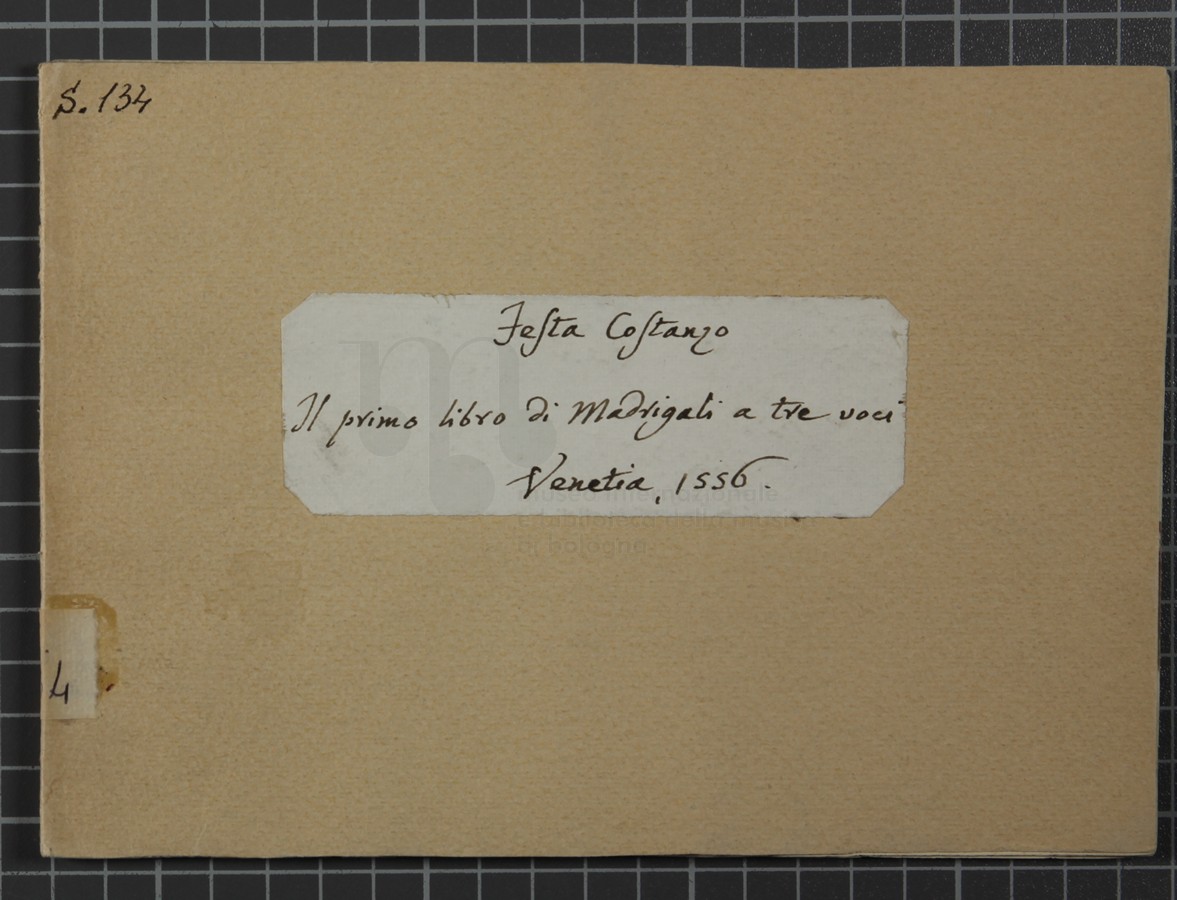 S. 134
Festa Costanzo
Il primo libro di Madrigali a tre voci
Venetia, 1556.
museo internazionale
e biblioteca della musica
di bologna
4